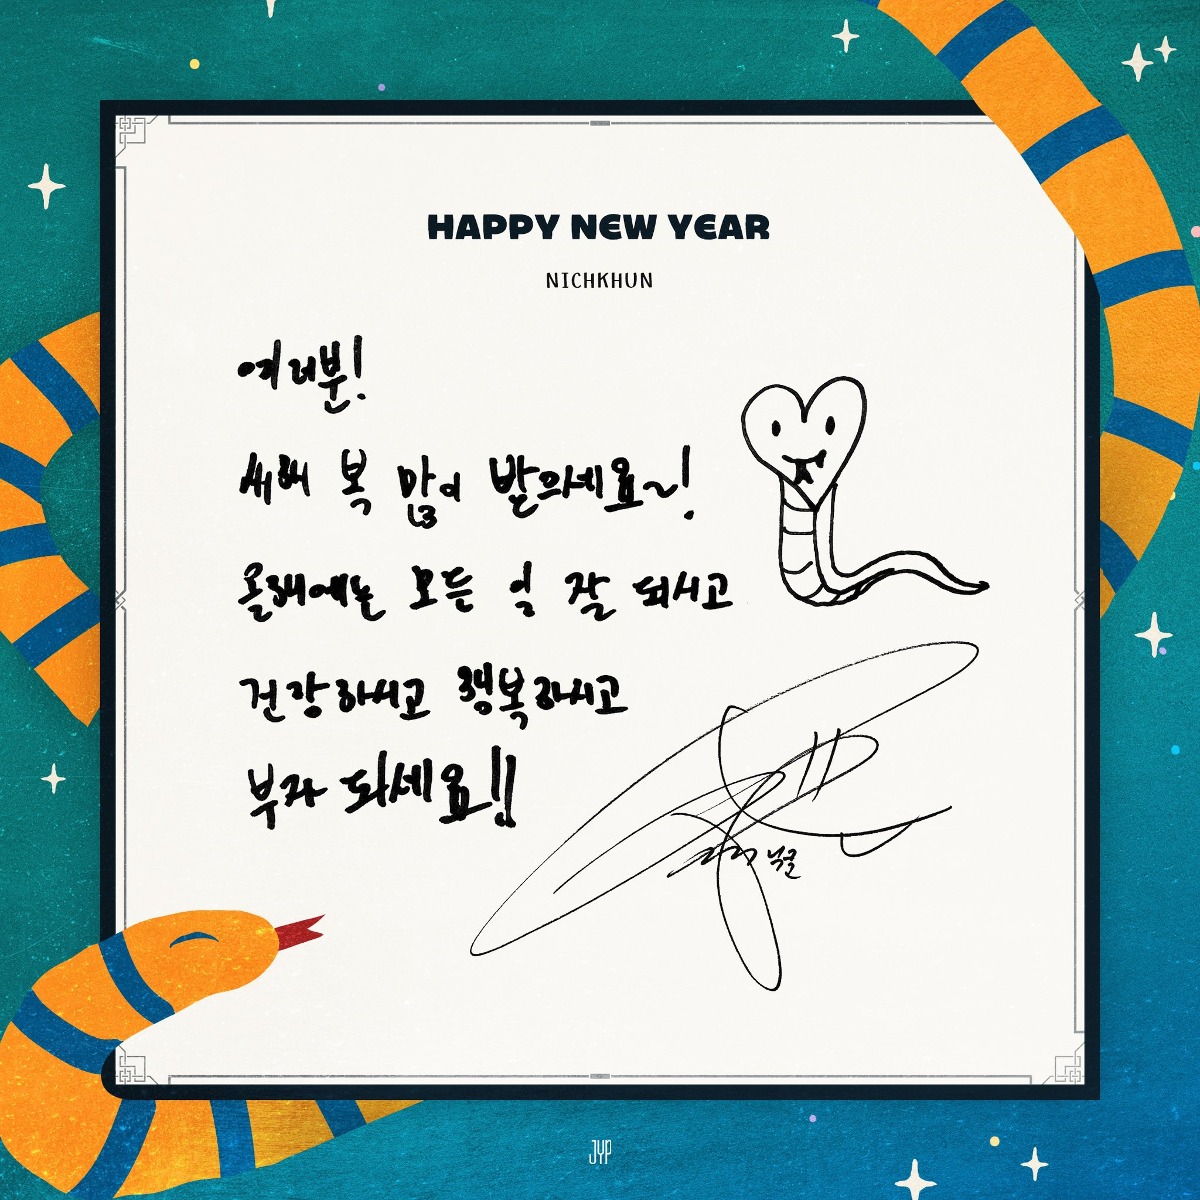 HAPPY NEW YEAR
NICHKHUN
여러분!
새해 복 많이 받으세요~!
올해에는 모든 일 잘 되시고
건강하시고 행복하시고
부자 되세요!!
닉쿤
JYP